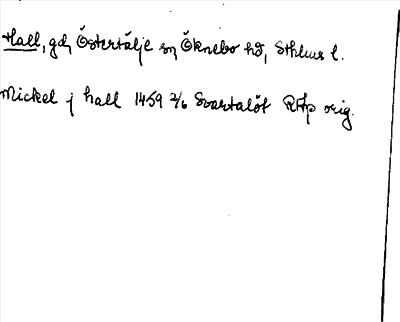 Hall, gd, Östertälje sn, Öknebo hd, Sthlms l.
Mickel j hall 1459 2/6 Svartalöt RAp orig.